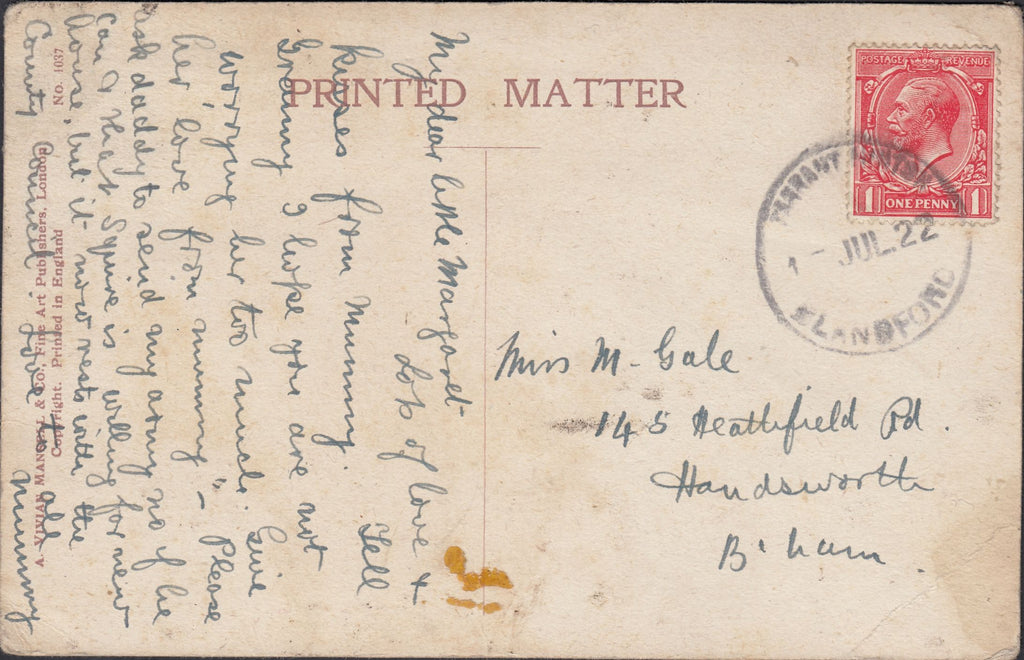 PRINTED MATTER
POSTAGE REVENUE
1 ONE PENNY 1
TARRANT
1 - JUL. 22
BLANDFORD
My dear little Margaret
Lots of love +
kisses from Mummy. Tell
Granny I hope you are not
worrying her too much. Give
her love from mummy" - Please
ask daddy to send my army no if he
can & that Squire is willing for new
house, but it now rests with the
County Council. Love to all
Mummy
Miss M. Gale
145 Heathfield Rd.
Handsworth
B'ham.
No. 1037
A. VIVIAN MANSELL & Co., Fine Art Publishers, London
Copyright. Printed in England